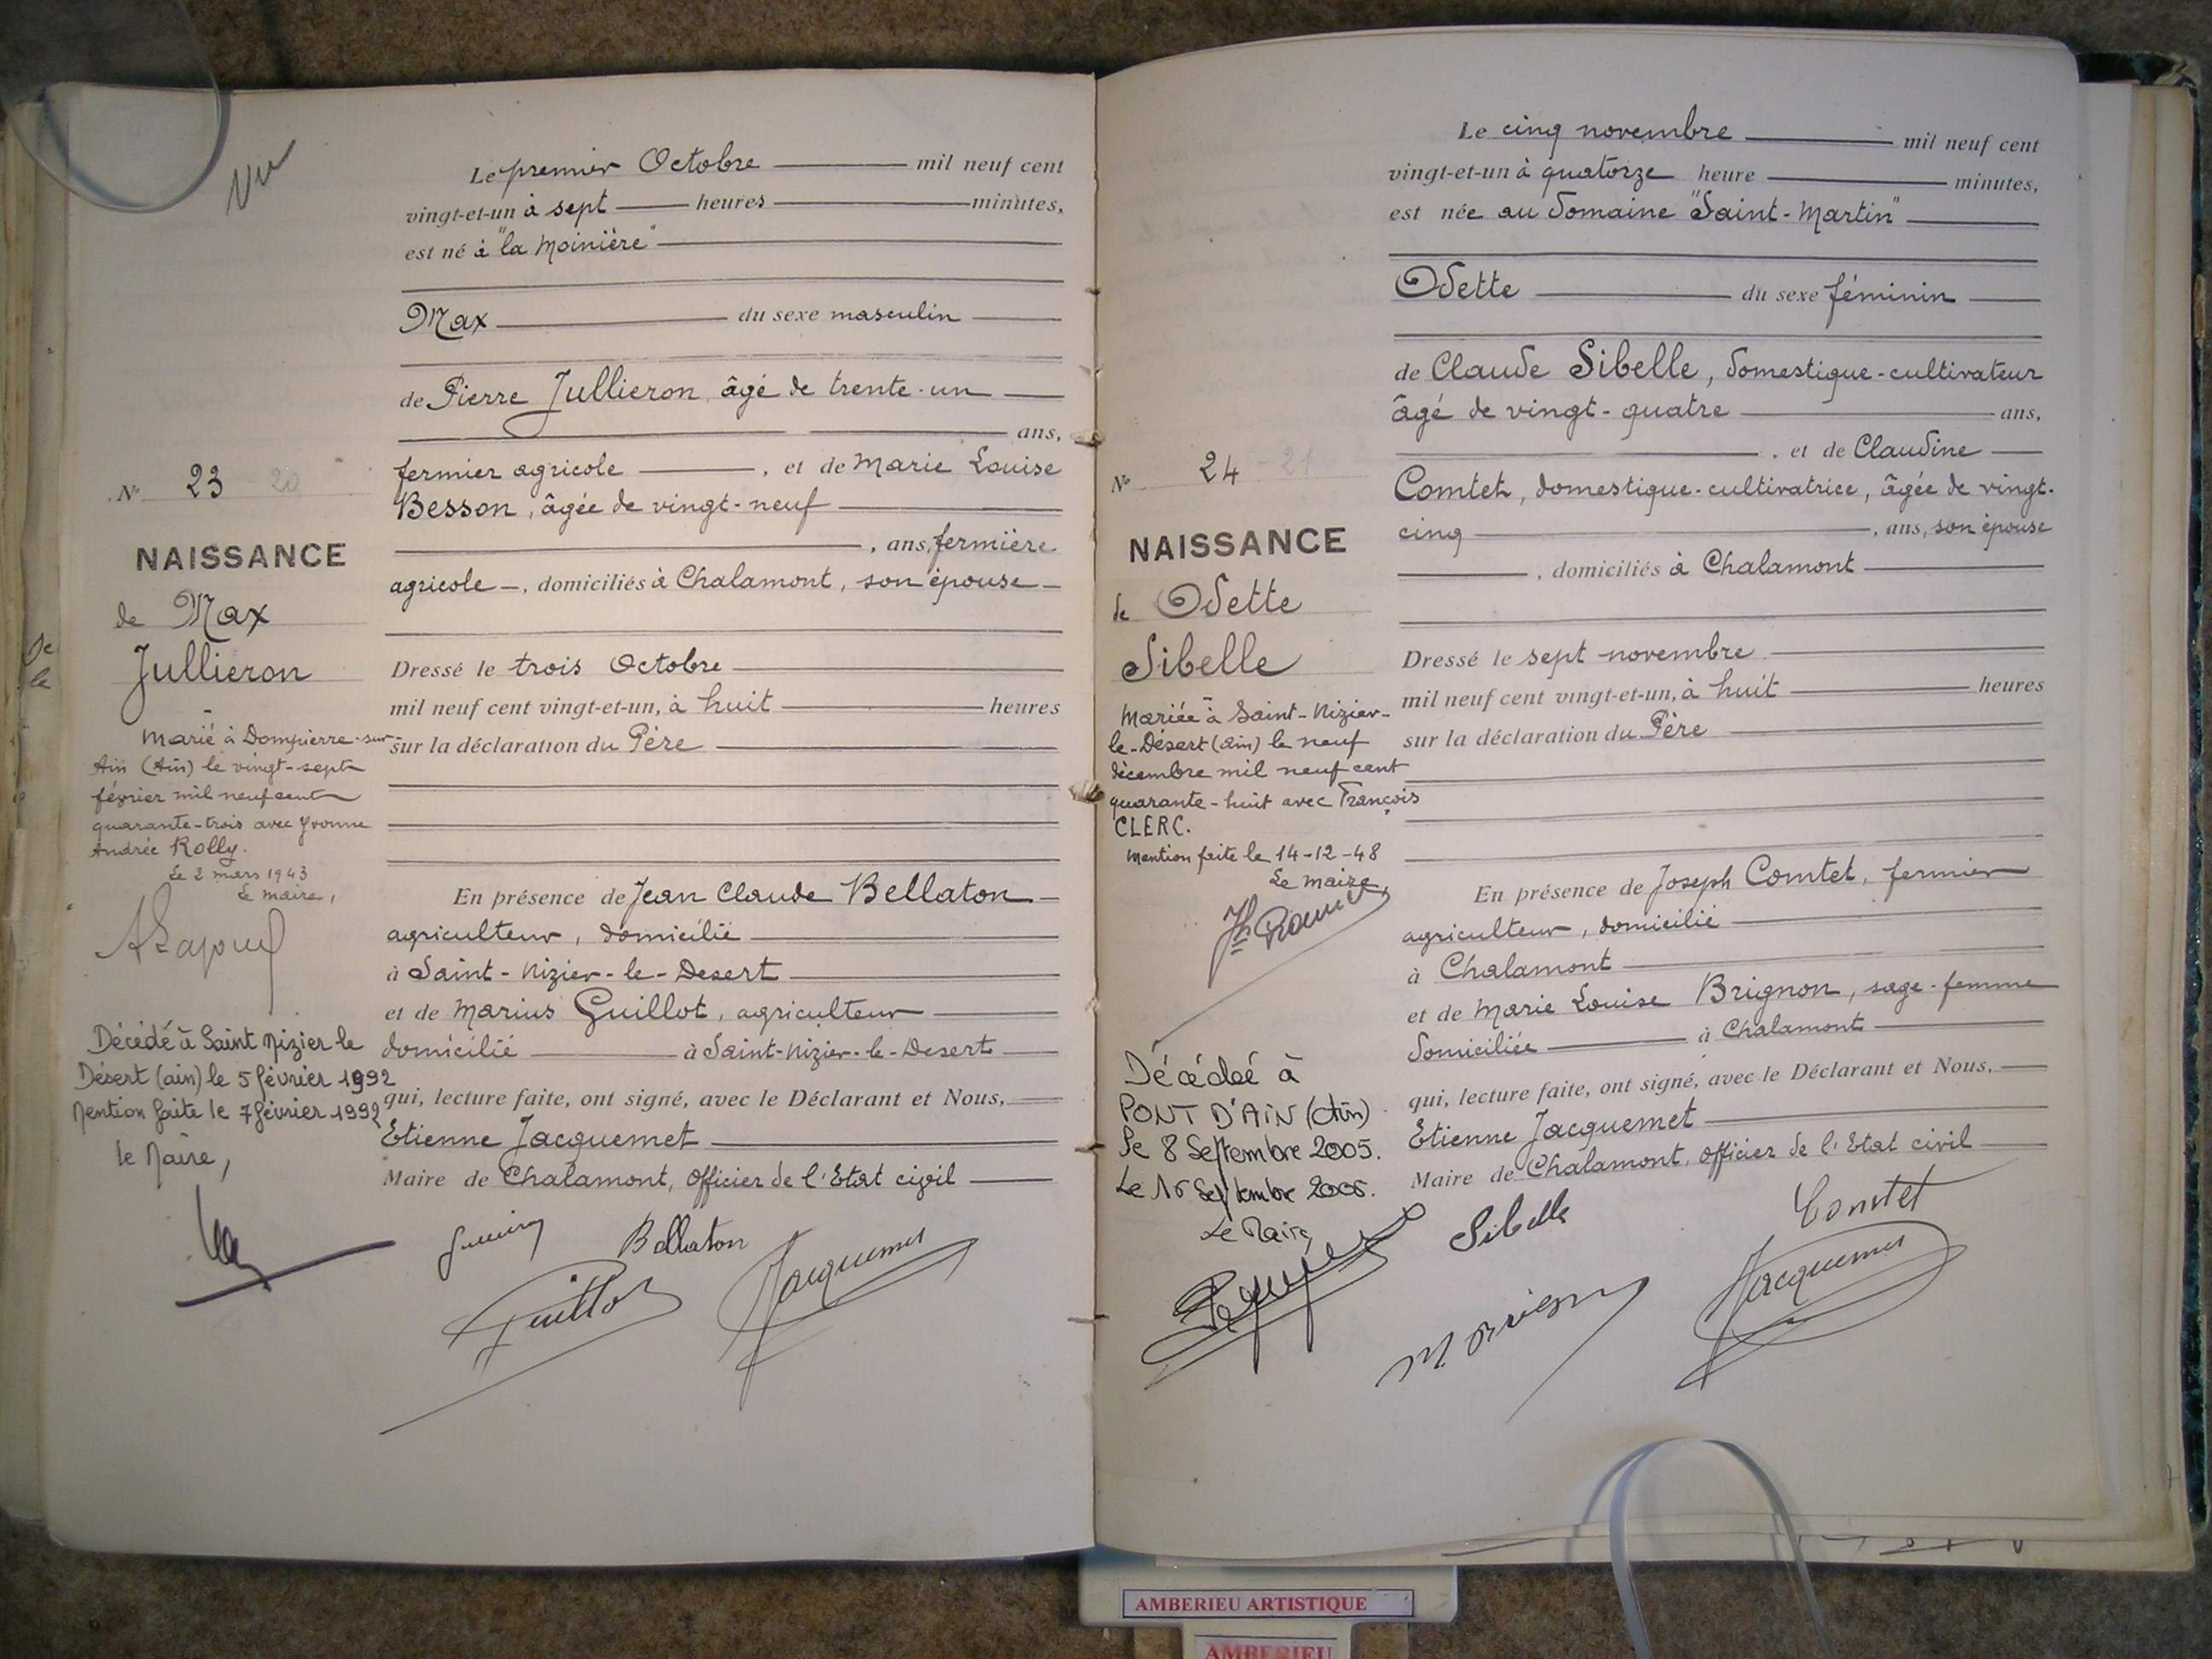 Vu
Le premier Octobre mil neuf cent
vingt-et-un à sept heures minutes,
est né à "la Moinière"
Max du sexe masculin
de Pierre Jullieron, âgé de trente-un
ans,
fermier agricole, et de Marie Louise
Besson, âgée de vingt-neuf
, ans, fermière
agricole, domiciliés à Chalamont, son épouse
Dressé le trois Octobre
mil neuf cent vingt-et-un, à huit heures
sur la déclaration du Père
En présence de Jean Claude Bellaton
agriculteur, domicilié
à Saint-Nizier-le-Desert
et de Marius Guillot, agriculteur
domicilié à Saint-Nizier-le-Desert
qui, lecture faite, ont signé, avec le Déclarant et Nous,
Etienne Jacquemet
Maire de Chalamont, Officier de l'Etat civil
Bellaton
Guillot
Jacquemet
N° 23 20
NAISSANCE
de Max
Jullieron
Marié à Dompierre-sur
Ain (Ain) le vingt-sept
février mil neuf cent
quarante-trois avec Yvonne
Andrée Rolly.
Le 2 mars 1943
Le maire,
Décédé à Saint Nizier le
Désert (ain) le 5 février 1992
Mention faite le 7 février 1992
le Maire,
Le cinq novembre mil neuf cent
vingt-et-un à quatorze heure minutes,
est née au Domaine "Saint-Martin"
Odette du sexe féminin
de Claude Sibelle, domestique-cultivateur
âgé de vingt-quatre ans,
, et de Claudine
Comtet, domestique-cultivatrice, âgée de vingt-
cinq , ans, son épouse
, domiciliés à Chalamont
Dressé le sept novembre
mil neuf cent vingt-et-un, à huit heures
sur la déclaration du Père
En présence de Joseph Comtet, fermier
agriculteur, domicilié
à Chalamont
et de Marie Louise Brignon, sage-femme
domiciliée à Chalamont
qui, lecture faite, ont signé, avec le Déclarant et Nous,
Etienne Jacquemet
Maire de Chalamont, Officier de l'Etat civil
Sibelle
Comtet
Jacquemet
N° 24 21
NAISSANCE
de Odette
Sibelle
Mariée à Saint-Nizier-
le-Désert (Ain) le neuf
décembre mil neuf cent
quarante-huit avec François
CLERC.
Mention faite le 14-12-48
Le maire,
Décédée à
PONT D'AIN (Ain)
le 8 Septembre 2005.
Le Septembre
Le Maire,
AMBERIEU ARTISTIQUE
AMBERIEU